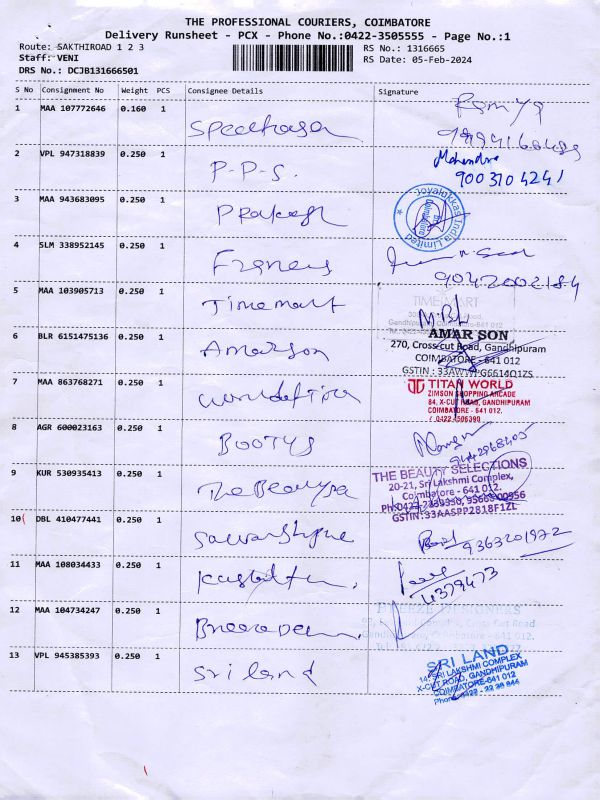 THE PROFESSIONAL COURIERS, COIMBATORE
Delivery Runsheet - PCX - Phone No.:0422-3505555 - Page No.:1
Route: SAKTHIROAD 1 2 3
RS No.: 1316665
Staff: VENI
RS Date: 05-Feb-2024
DRS No.: DCJB131666501
S No Consignment No Weight PCS Consignee Details Signature
1 MAA 107772646 0.160 1
Ramya
2 VPL 947318839 0.250 1 P-P-S. Mahendra
9003104241
3 MAA 943683095 0.250 1 Prakash
Joyalukkas India Limited
Coimbatore
4 SLM 338952145 0.250 1
9042002184
5 MAA 103905713 0.250 1 Timemart
TIME MART
Gandhipuram, Coimbatore-641 012
6 BLR 6151475136 0.250 1 Amarson
AMAR SON
270, Cross-cut Road, Gandhipuram
COIMBATORE - 641 012
7 MAA 863768271 0.250 1
TITAN WORLD
ZIMSON SHOPPING ARCADE
84, X-CUT ROAD, GANDHIPURAM
COIMBATORE - 641 012.
8 AGR 600023163 0.250 1 BOOTYS
9 KUR 530935413 0.250 1
THE BEAUTY SELECTIONS
20-21, Sri Lakshmi Complex,
Coimbatore - 641 012.
GSTIN:33AASPP2818F1ZL
10 DBL 410477441 0.250 1
9363201972
11 MAA 108034433 0.250 1
4379473
12 MAA 104734247 0.250 1
BREEZE DESIGNERS
13 VPL 945385393 0.250 1 Sriland
SRI LAND
14, SRI LAKSHMI COMPLEX
X-CUT ROAD, GANDHIPURAM
COIMBATORE-641 012